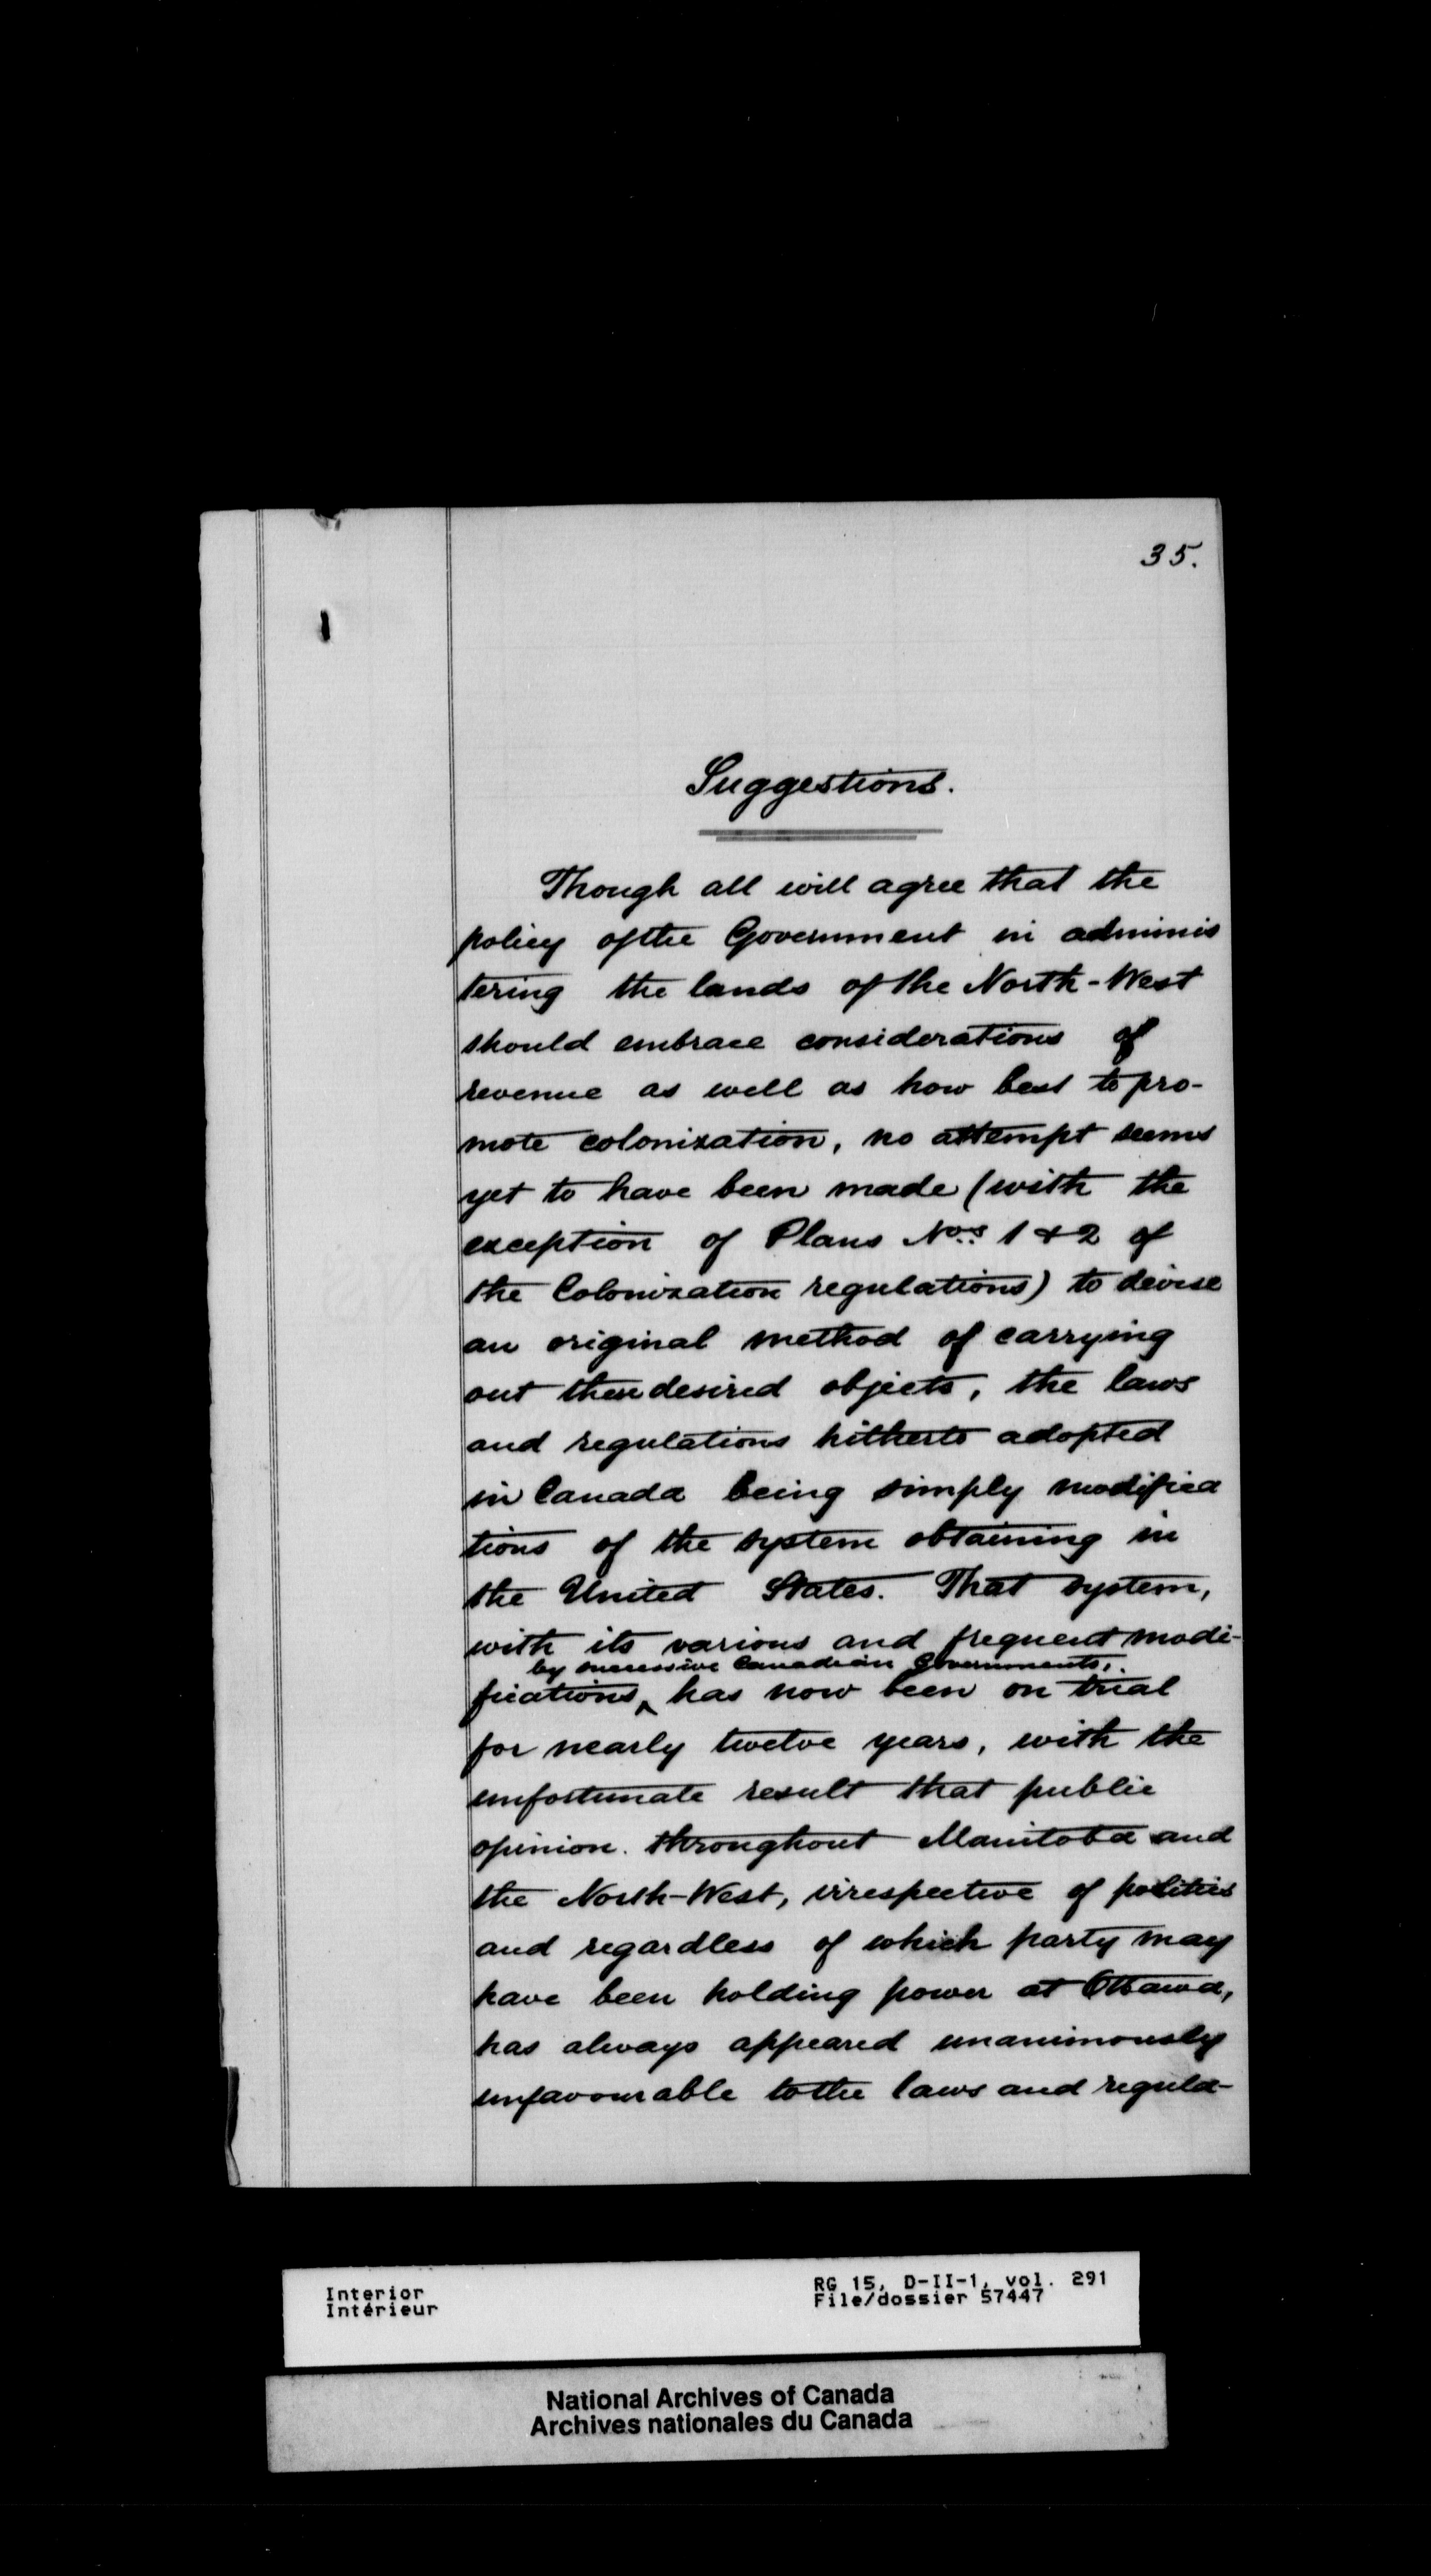 35.
Suggestions.
Though all will agree that the
policy of the Government in adminis
tering the lands of the North-West
should embrace considerations of
revenue as well as how best to pro-
mote colonization, no attempt seems
yet to have been made (with the
exception of Plans Nos. 1 & 2 of
the Colonization regulations) to devise
an original method of carrying
out these desired objects, the laws
and regulations hitherto adopted
in Canada being simply modifica
tions of the system obtaining in
the United States. That system,
with its various and frequent modi-
by successive Canadian Governments,
fications, has now been on trial
for nearly twelve years, with the
unfortunate result that public
opinion throughout Manitoba and
the North-West, irrespective of politics
and regardless of which party may
have been holding power at Ottawa,
has always appeared unanimously
unfavourable to the laws and regula-
Interior
Intérieur
RG 15, D-II-1, vol. 291
File/dossier 57447
National Archives of Canada
Archives nationales du Canada